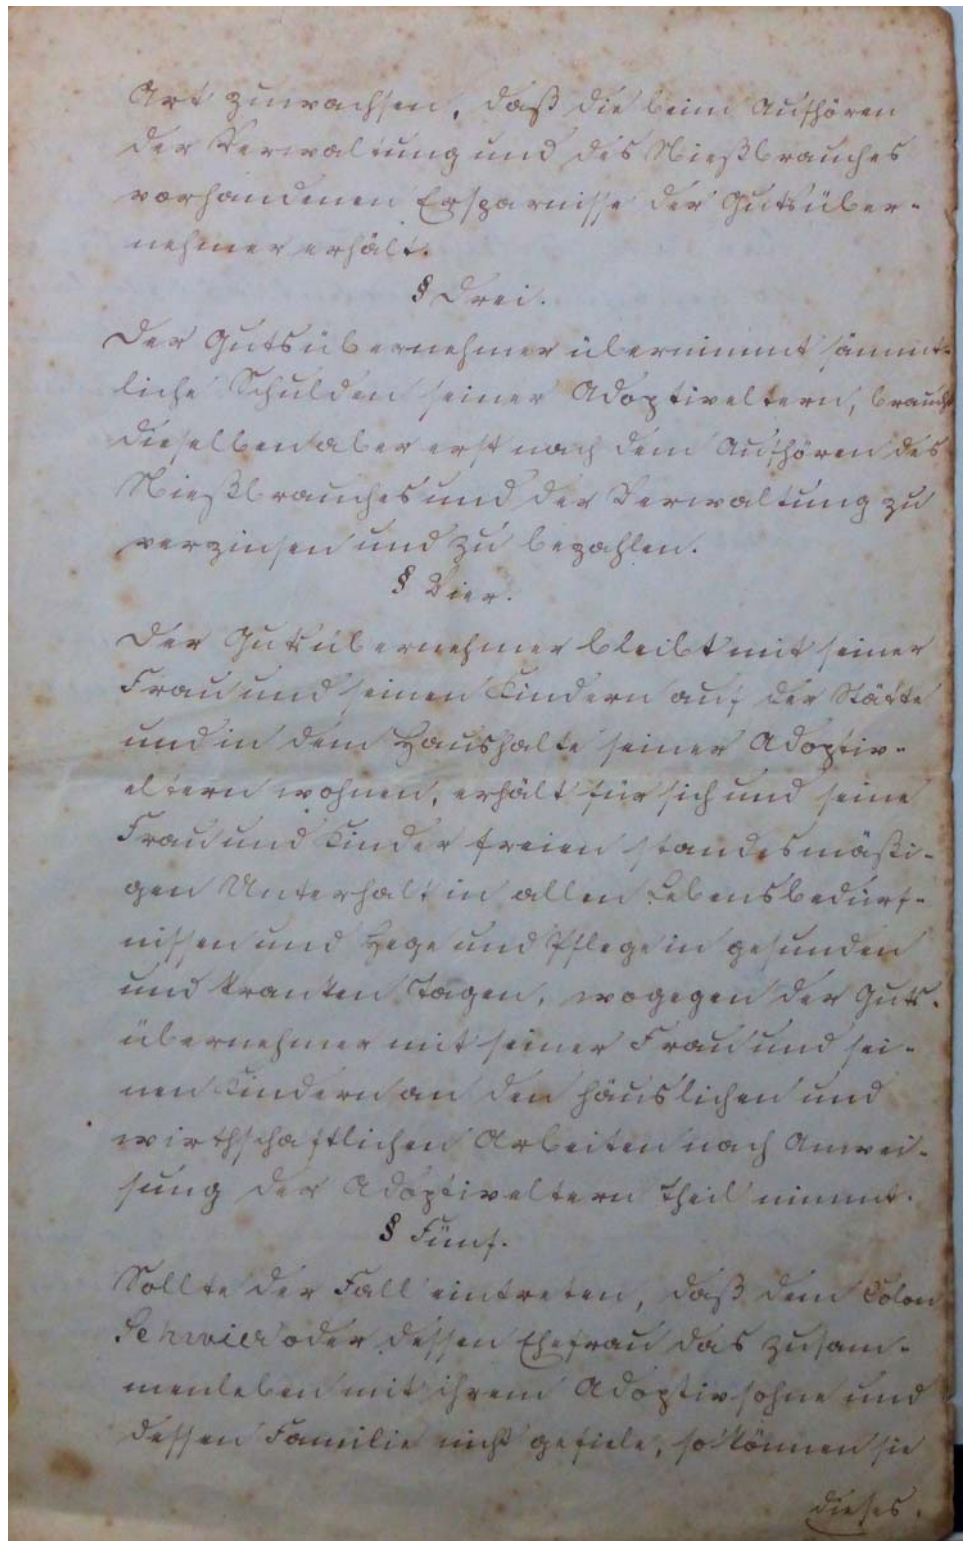 Art zuwachsen, daß die beim Aufhören
der Verwaltung und des Nießbrauches
vorhandenen Ersparnisse der Gutsüber-
nehmer erhält.
§ Drei.
Der Gutsübernehmer übernimmt sämmt-
liche Schulden seiner Adoptiveltern, braucht
dieselben aber erst nach dem Aufhören des
Nießbrauches und der Verwaltung zu
verzinsen und zu bezahlen.
§ Vier.
Der Gutsübernehmer bleibt mit seiner
Frau und seinen Kindern auf der Stätte
und in dem Haushalte seiner Adoptiv-
eltern wohnen, erhält für sich und seine
Frau und Kinder freien standesmäßi-
gen Unterhalt in allen Lebensbedürf-
nissen und Hege und Pflege in gesunden
und kranken Tagen, wogegen der Guts-
übernehmer mit seiner Frau und sei-
nen Kindern an den häuslichen und
wirthschaftlichen Arbeiten nach Anwei-
sung der Adoptiveltern Theil nimmt.
§ Fünf.
Sollte der Fall eintreten, daß dem Colon
Schwier oder dessen Ehefrau das Zusam-
menleben mit ihrem Adoptivsohne und
dessen Familie nicht gefiele, so können sie
dieses.